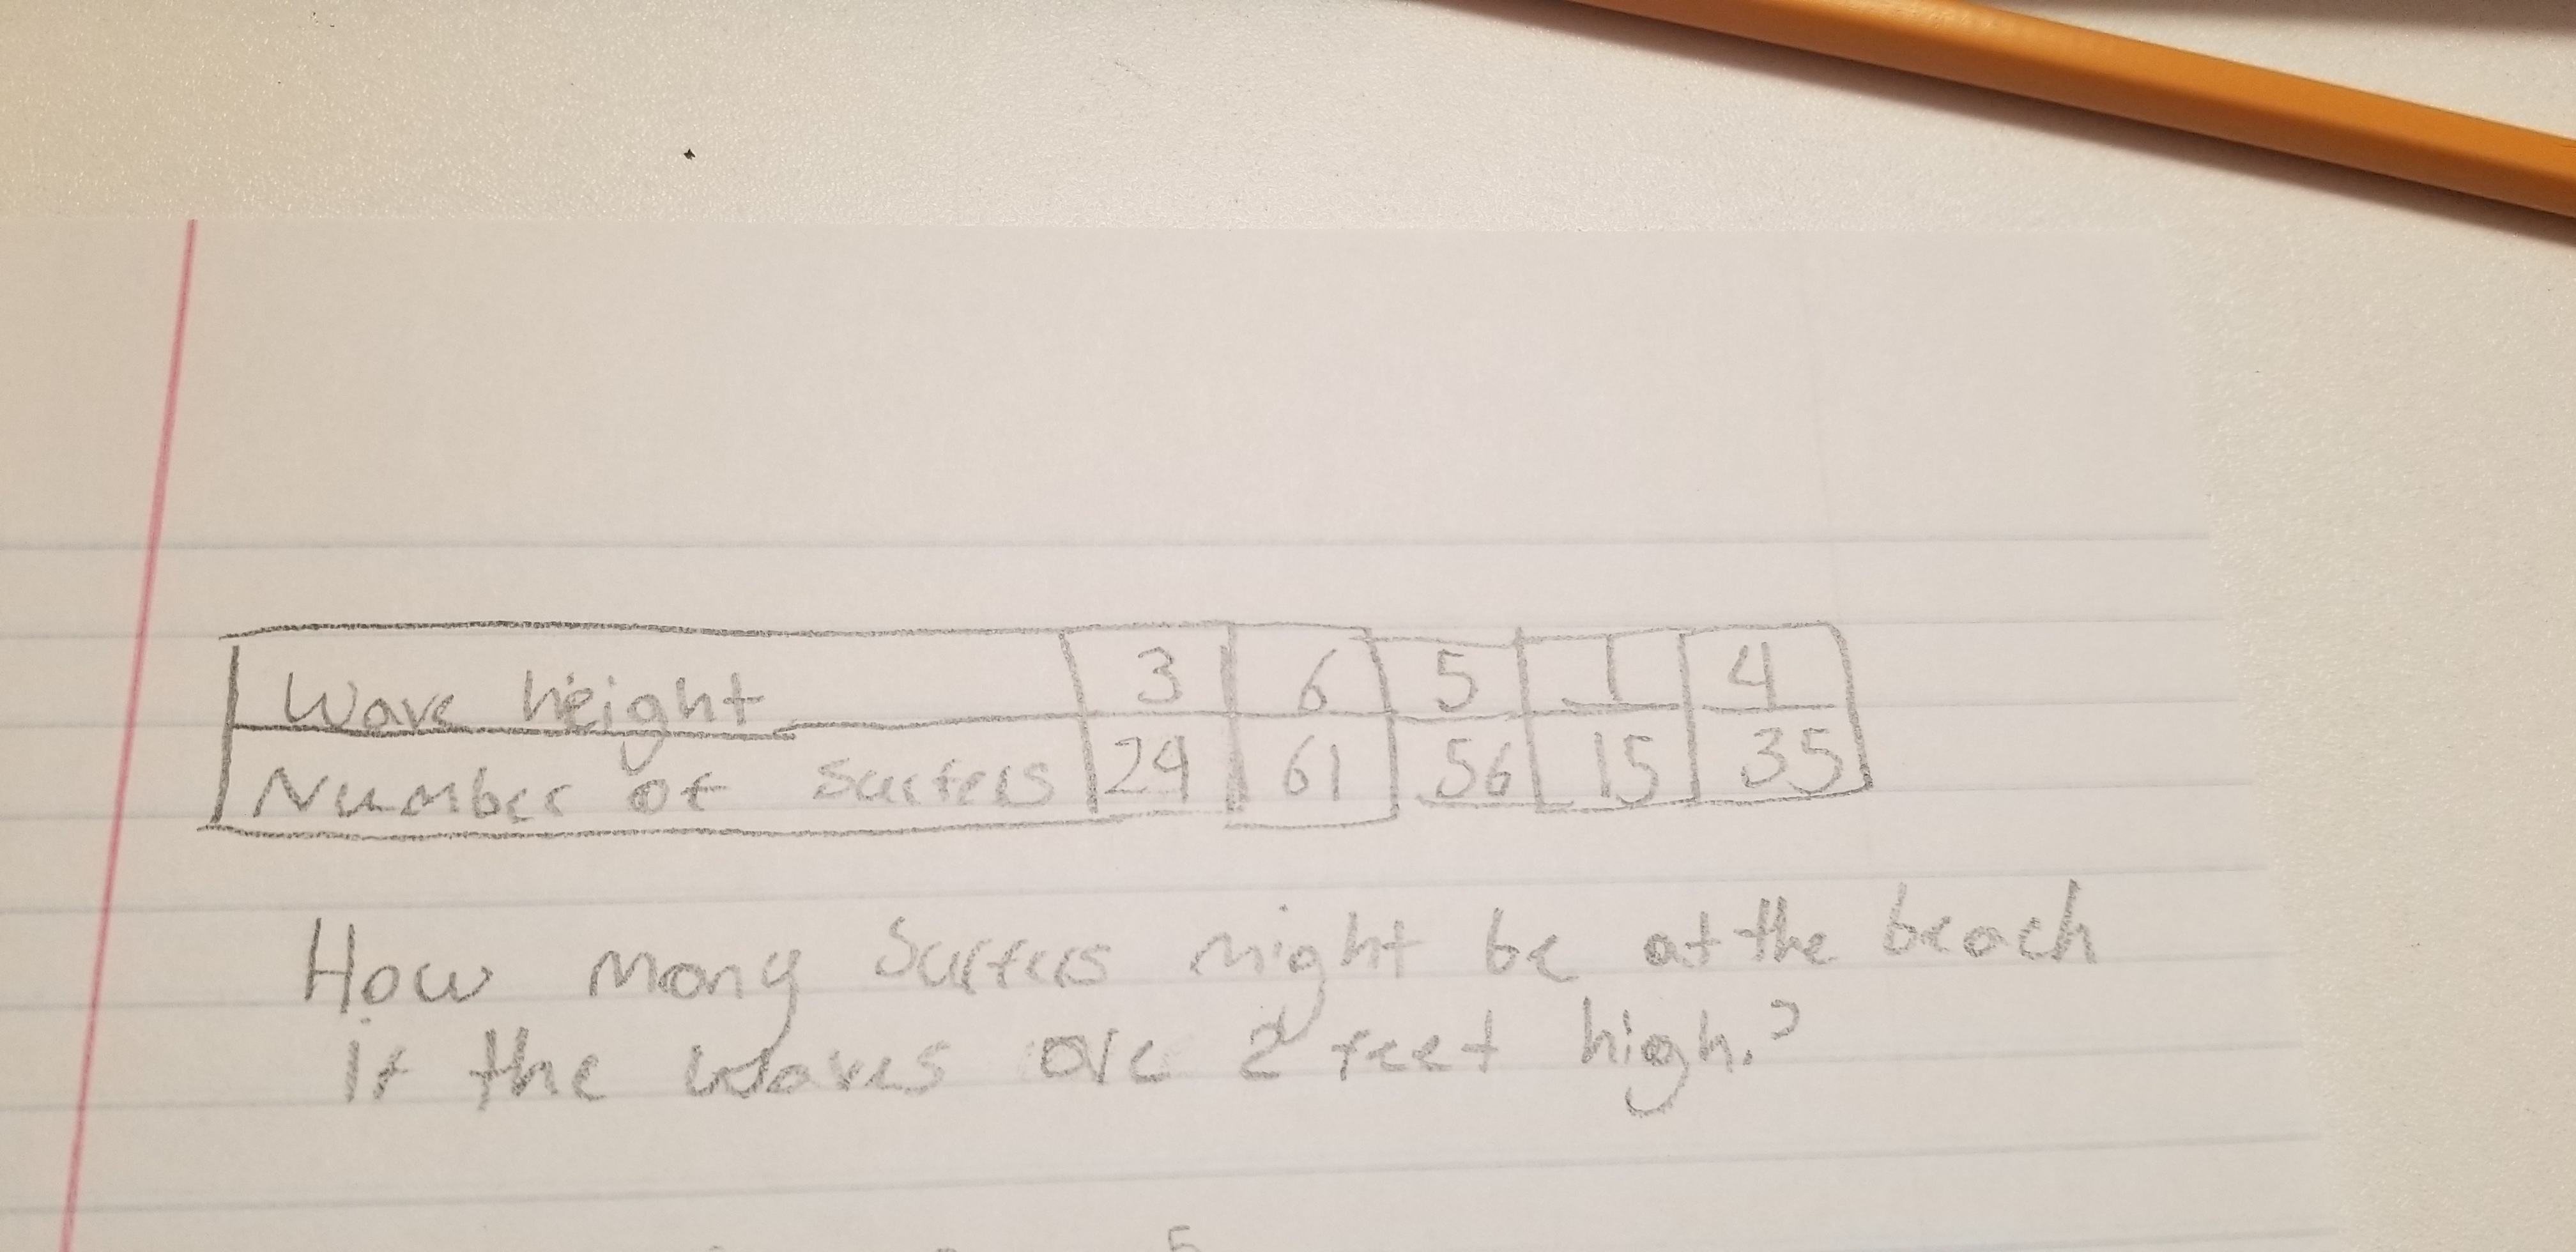 Wave height 3 6 5 1 4
Number of surfers 24 61 56 15 35
How many surfers might be at the beach
if the waves are 2 feet high?